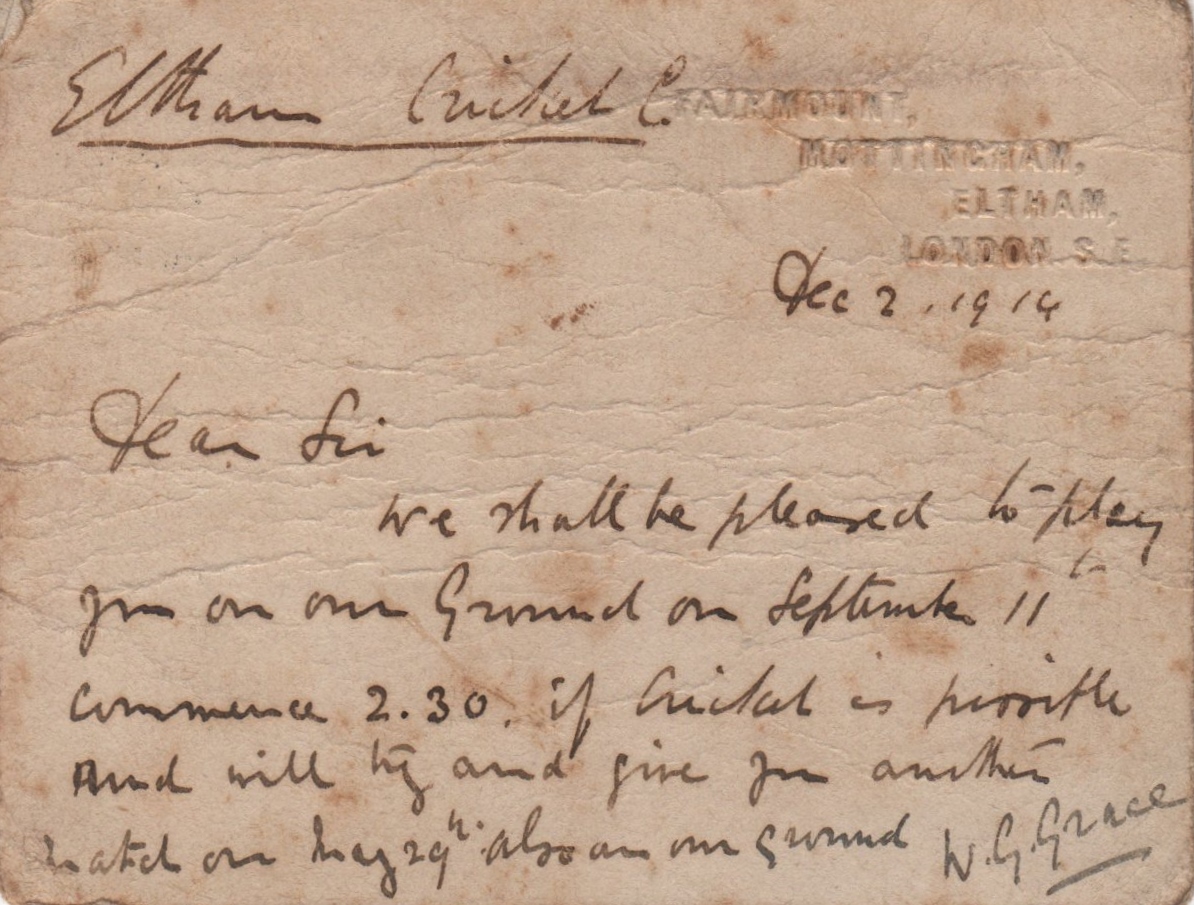 Eltham Cricket C.
FAIRMOUNT,
MOTTINGHAM,
ELTHAM,
LONDON S.E.
Dec 2. 1914
Dear Sir
We shall be pleased to play
you on our Ground on September 11th
commence 2.30. if Cricket is possible
And will try and give you another
match on May 29th. also on our ground W.G. Grace